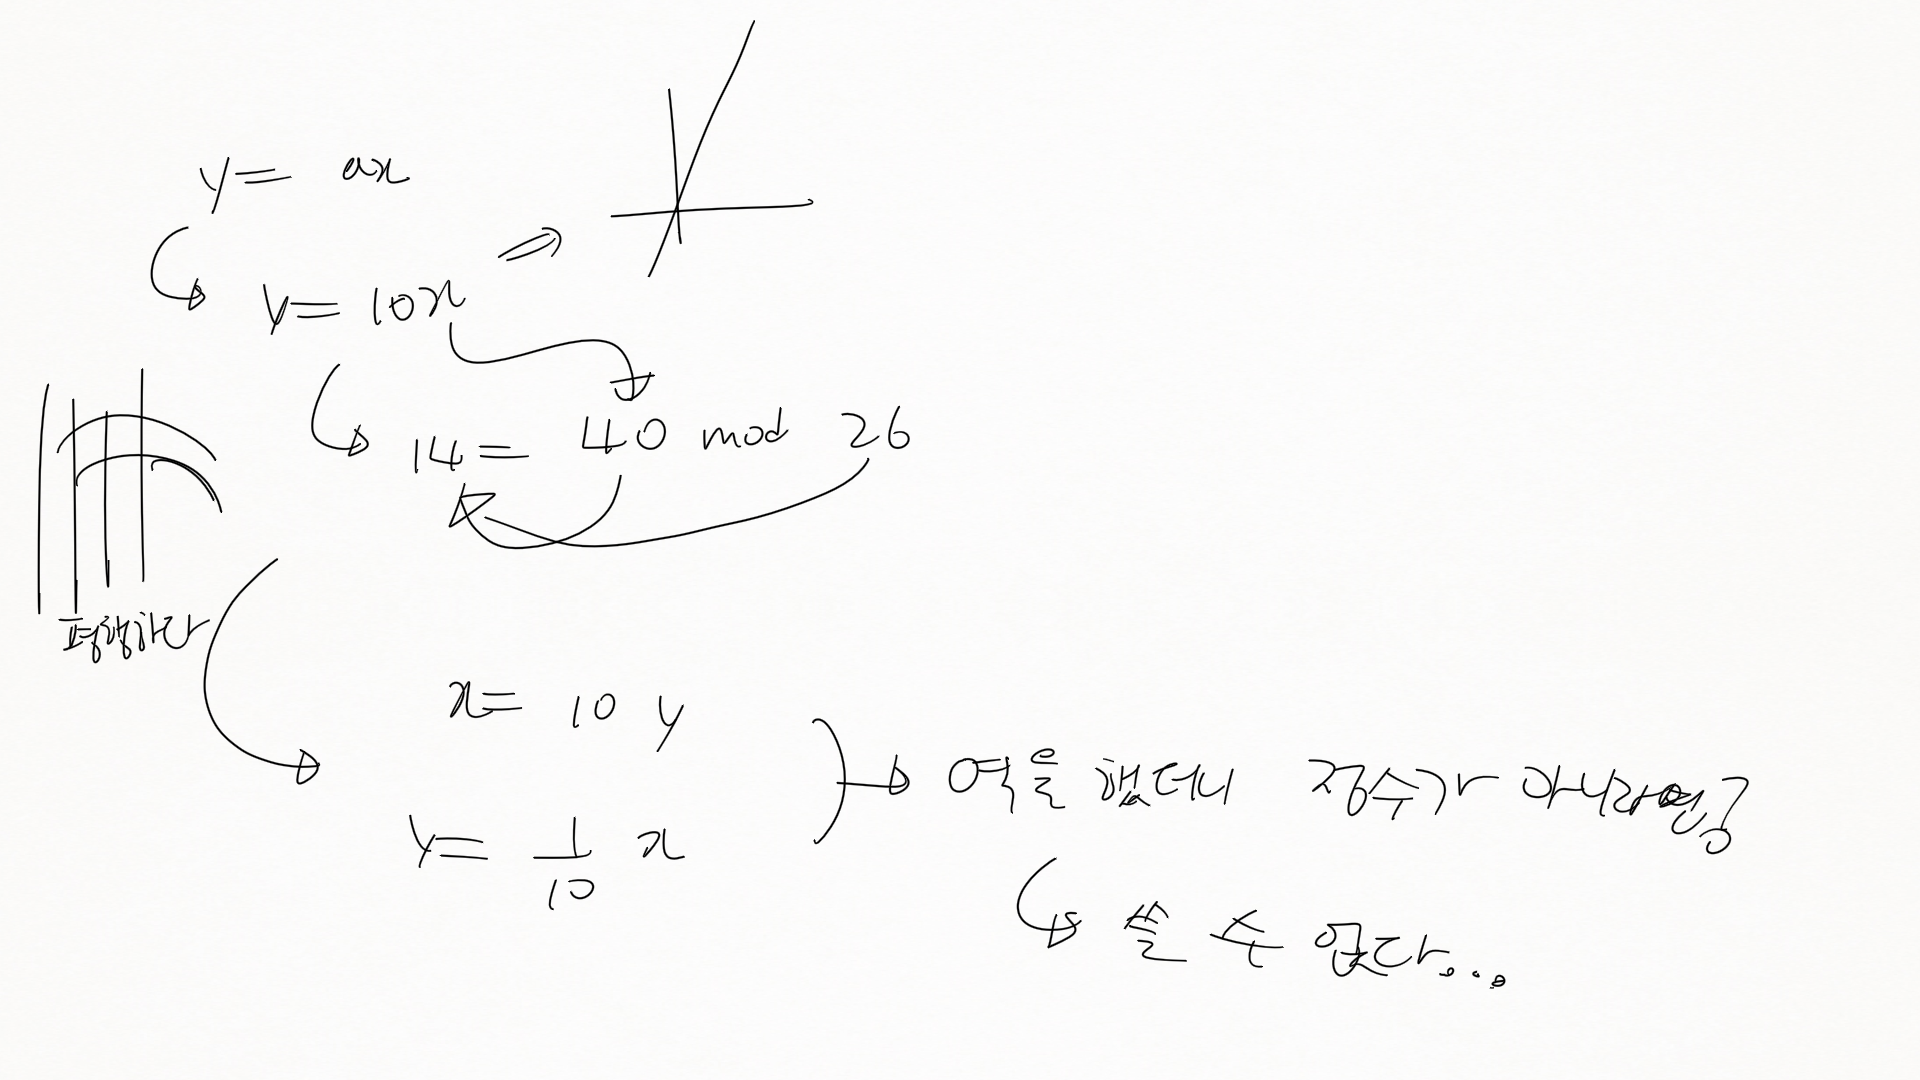 y = ax
y = 10x
14 = 40 mod 26
평행하다
x = 10 y
y = 1/10 x
역을 했더니 정수가 아니라면?
쓸 수 없다...